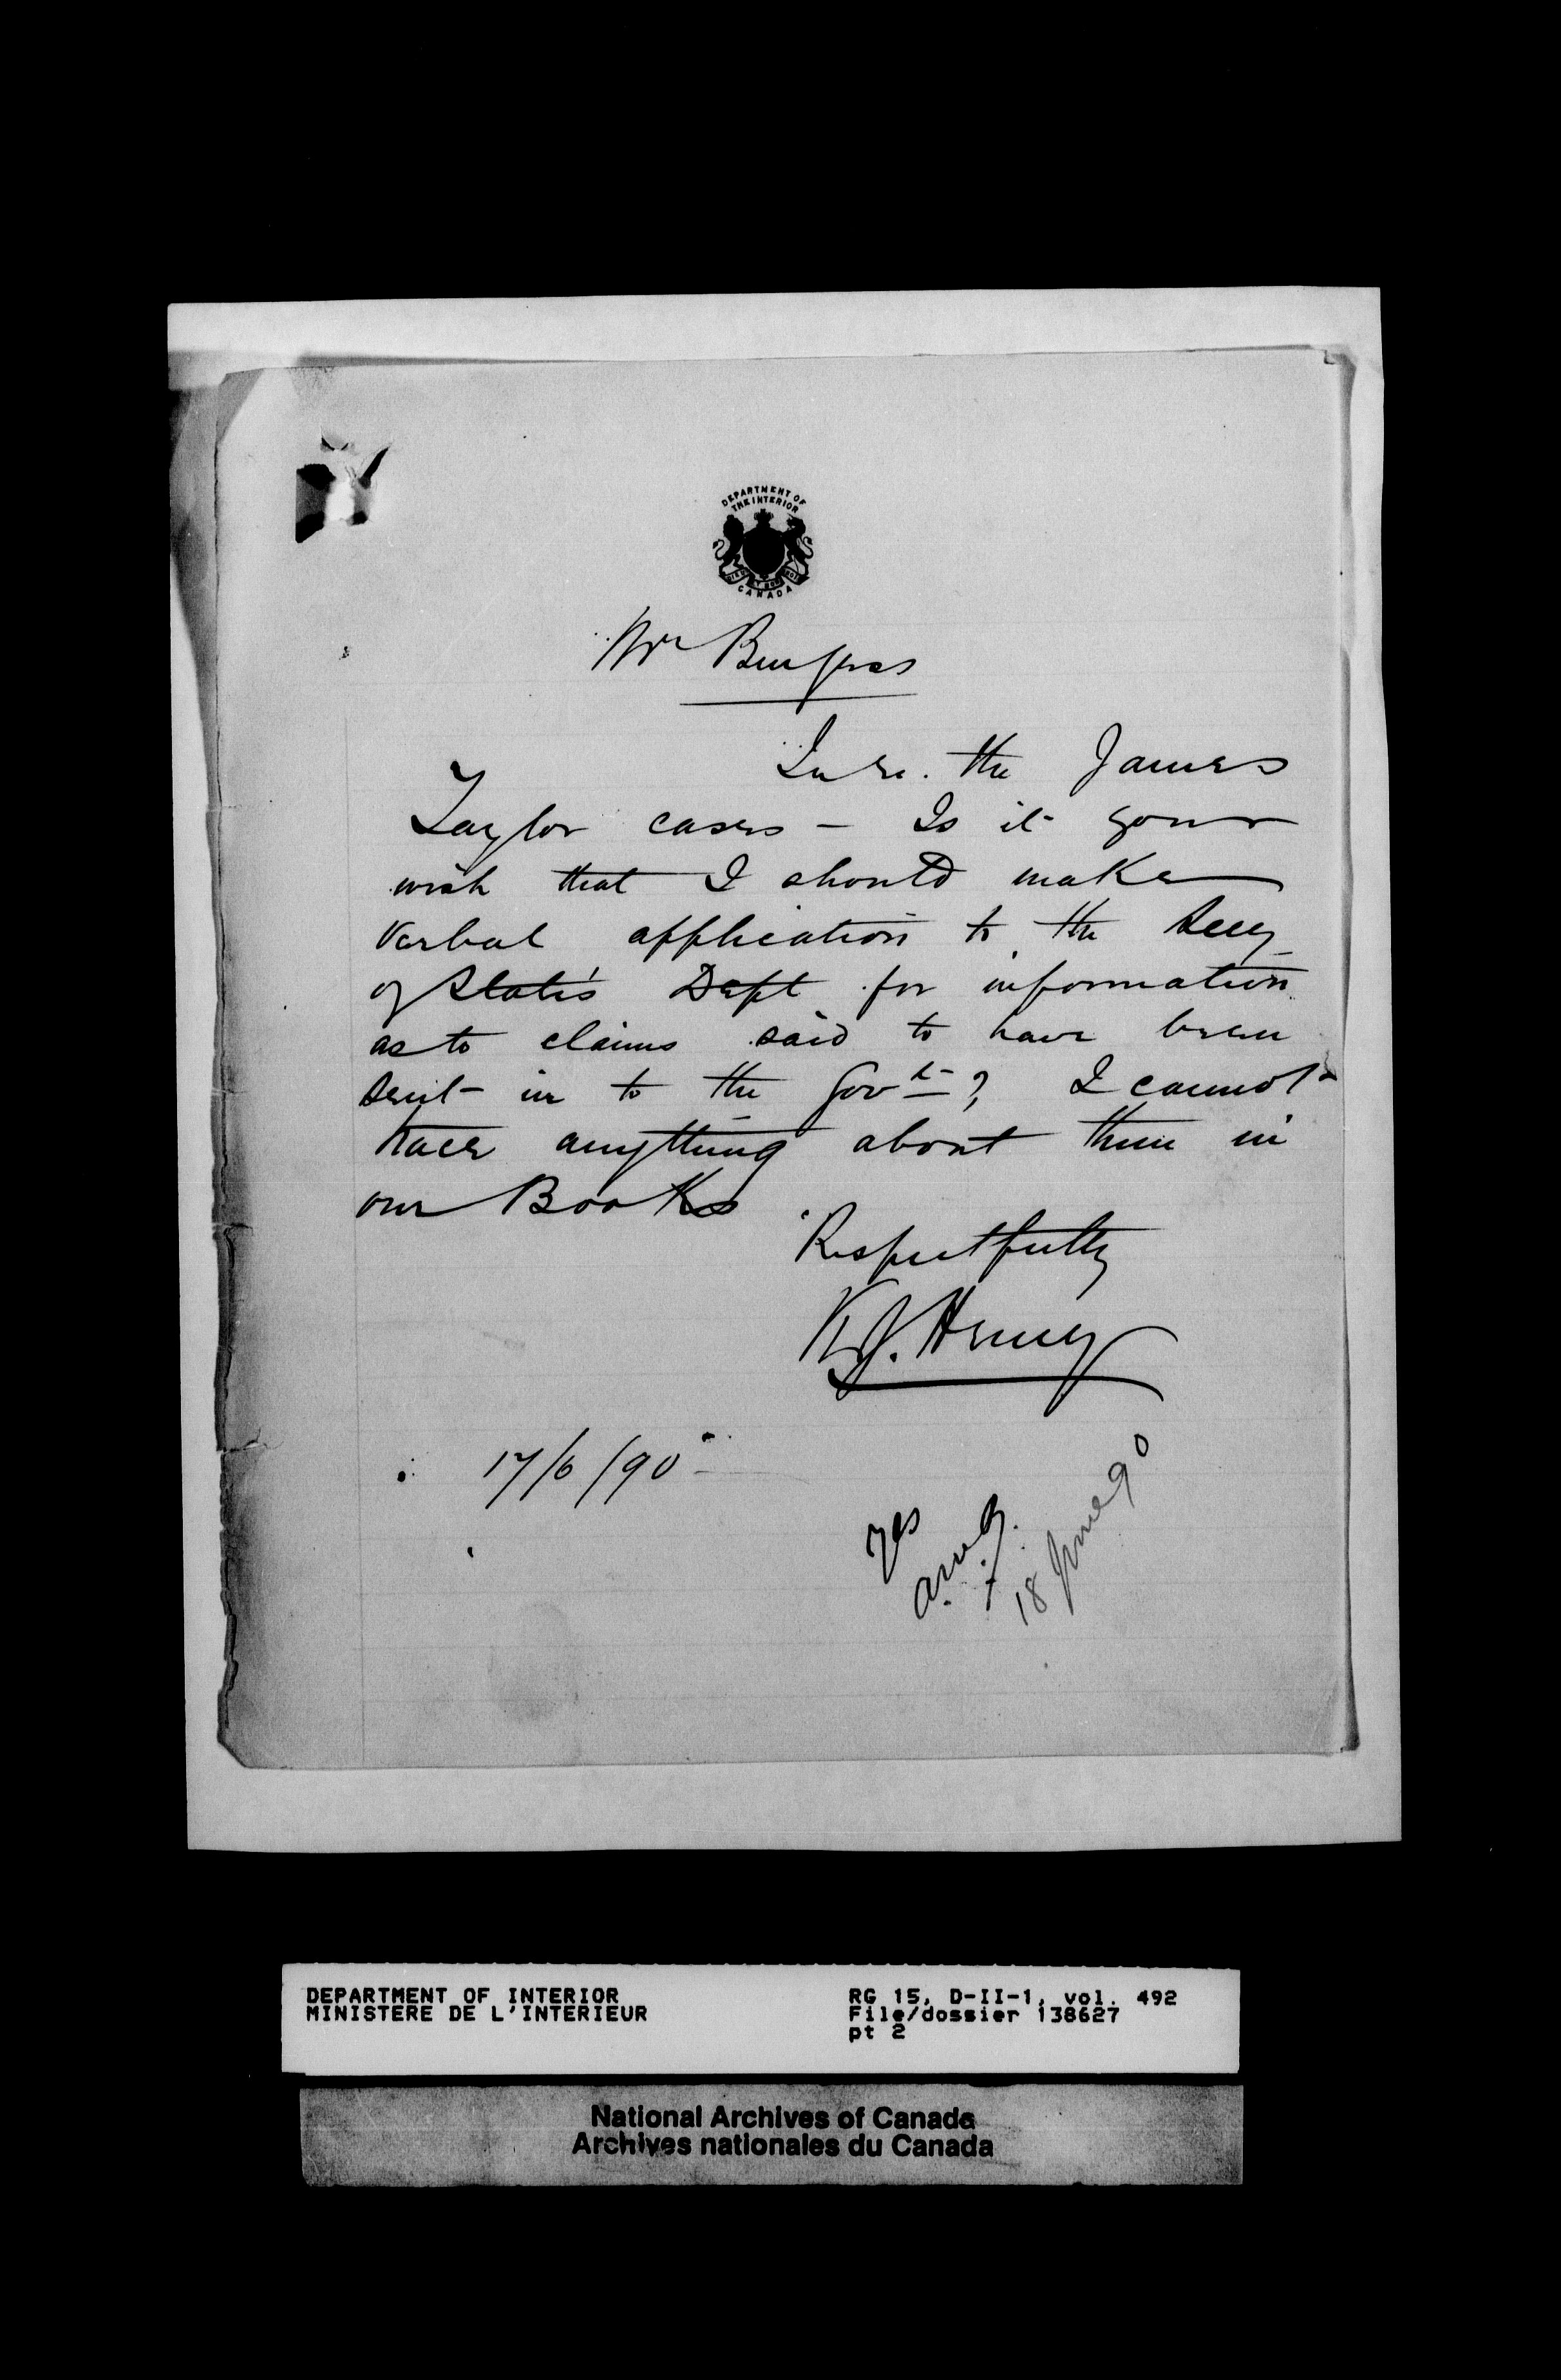 DEPARTMENT OF
THE INTERIOR
CANADA
Mr Burgess
In re. the James
Taylor cases – Is it your
wish that I should make
verbal application to the Secy
of State's Dept for information
as to claims said to have been
sent in to the Govt? I cannot
trace anything about them in
our Books
Respectfully
K.J. Henry
17/6/90
Yes
A.M.B.
18 June 90
DEPARTMENT OF INTERIOR
MINISTERE DE L'INTERIEUR
RG 15, D-II-1, vol. 492
File/dossier 138627
pt 2
National Archives of Canada
Archives nationales du Canada